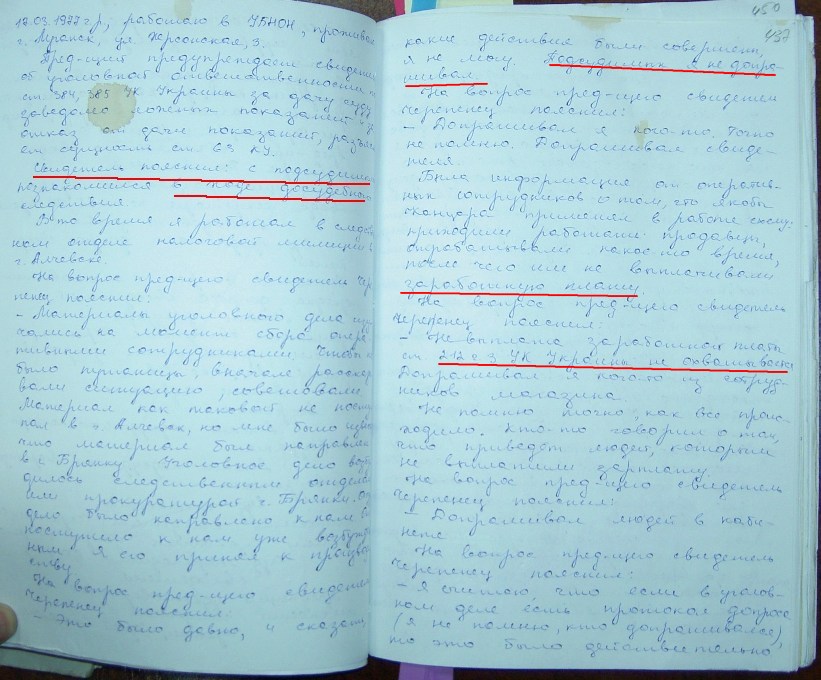 18.03.1977 г.р., работаю в УБНОН, прожива
г. Мрамск, ул. Херсонская, 3.
Пред-щий предупреждает свидетел
об уголовной ответственности п
ст. 384, 385 УК Украины за дачу суду
заведомо ложных показаний и
отказ от дачи показаний, разъяс
ст. 63 КУ.
Свидетель пояснил: с подсудимы
познакомился в ходе досудебного
следствия.
В то время я работал в следст
ном отделе налоговой милиции в
г. Алчевске.
На вопрос пред-щего свидетель Чер
пенец пояснил:
- Материалы уголовного дела изу
чались на момент сбора опера
тивными сотрудниками. Чтобы н
было путаницы, вначале
вали ситуацию, советовали
Материал как таковой не посту
пал в г. Алчевск, но мне было изве
что материал был направлен
в г. Брянку. Уголовное дело возбу
дилось следственным отделом
или прокуратурой г. Брянки.
дело было направлено к нам и
поступило к нам уже возбужд
ным. Я его принял к произво
ству.
На вопрос пред-щего свидетель
Черепенец пояснил:
- Это было давно, и сказать
450
437
какие действия были совершены,
я не могу. Подсудимых я не допра-
шивал.
На вопрос пред-щего свидетель
Черепенец пояснил:
- Допрашивал я кого-то, точно
не помню. Допрашивал свиде-
теля.
Была информация от оператив-
ных сотрудников о том, что якобы
применял в работе схему:
приходили работать продавцы,
отрабатывали какое-то время,
после чего им не выплачивали
заработную плату.
На вопрос пред-щего свидетель
Черепенец пояснил:
- Не выплата заработной платы
ст. 212 ч. 3 УК Украины не охватывается
Допрашивал я кого-то из сотруд-
ников магазина.
Не помню точно, как все проис-
ходило. Кто-то говорил о том,
что приведет людей, которым
не выплатили зарплату.
На вопрос пред-щего свидетель
Черепенец пояснил:
- Допрашивал людей в каби-
нете.
На вопрос пред-щего свидетель
Черепенец пояснил:
- Я считаю, что если в уголов-
ном деле есть протокол допроса
(я не помню, кто допрашивался),
то это было действительно